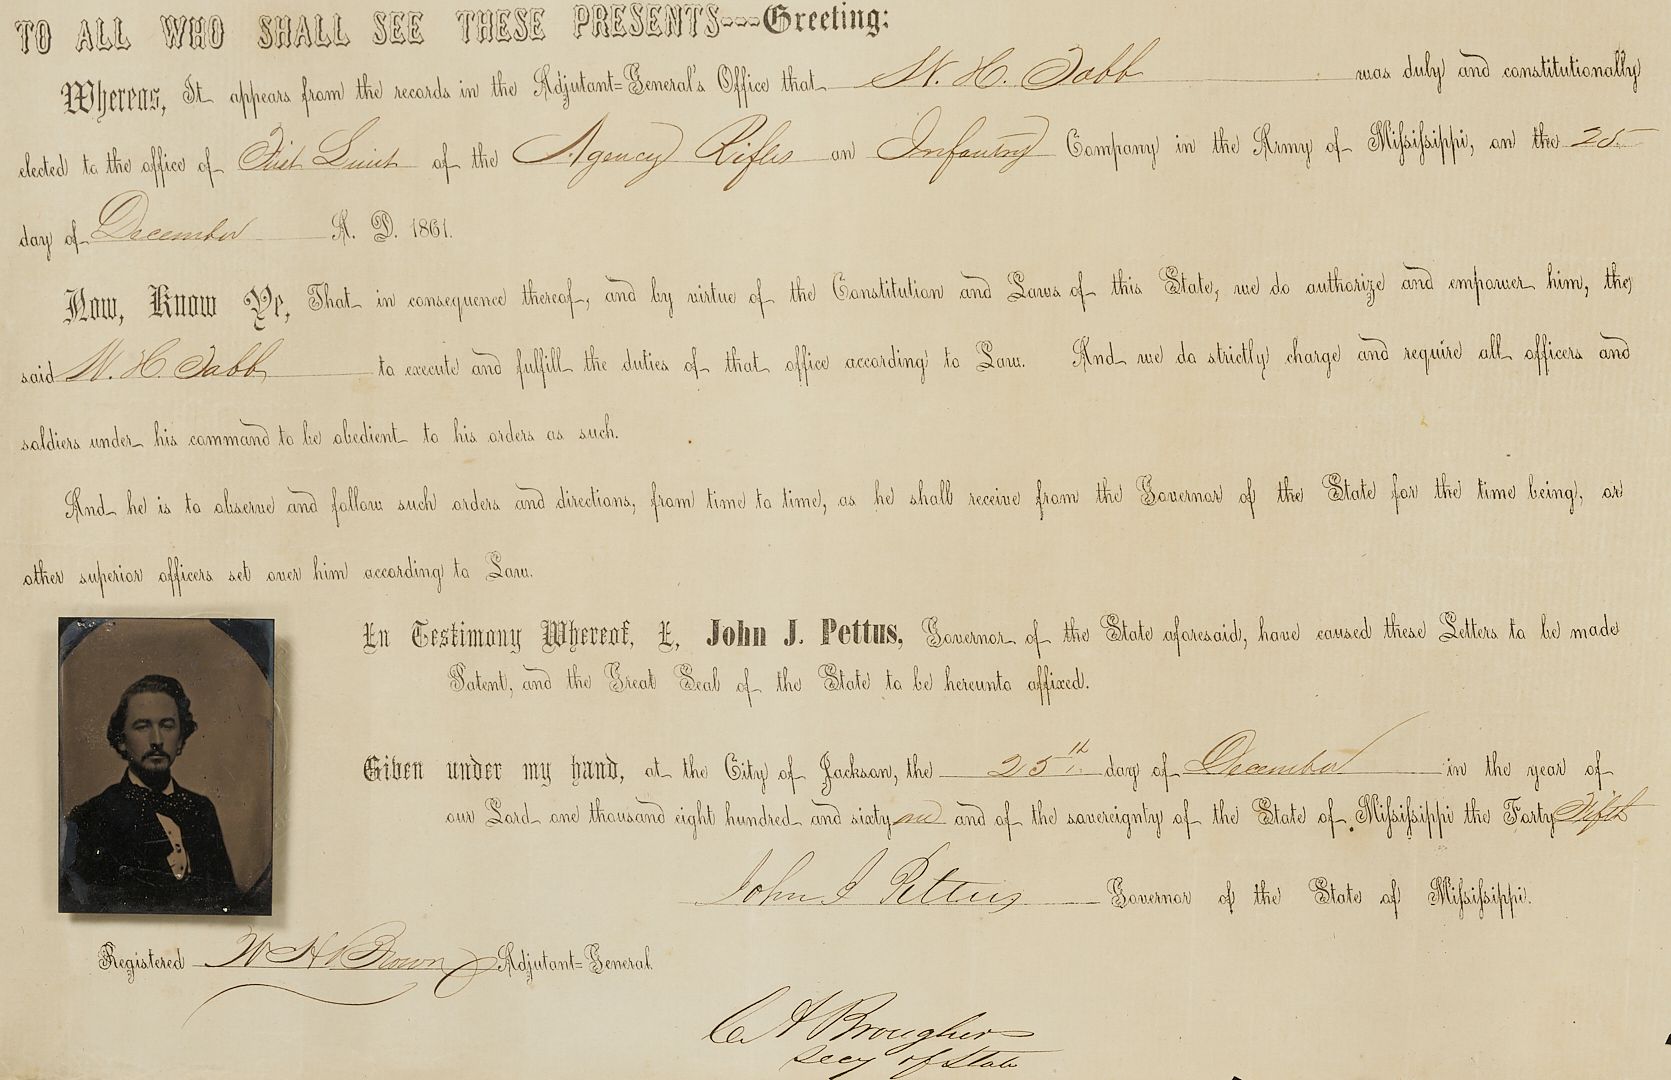 TO ALL WHO SHALL SEE THESE PRESENTS---Greeting:
Whereas, It appears from the records in the Adjutant=General's Office that W. H. Tabb was duly and constitutionally
elected to the office of First Lieut of the Agency Rifles an Infantry Company in the Army of Mississippi, on the 25
day of December A. D. 1861.
Now, Know Ye, That in consequence thereof, and by virtue of the Constitution and Laws of this State, we do authorize and empower him, the
said W. H. Tabb to execute and fulfill the duties of that office according to Law. And we do strictly charge and require all officers and
soldiers under his command to be obedient to his orders as such.
And he is to observe and follow such orders and directions, from time to time, as he shall receive from the Governor of the State for the time being, or
other superior officers set over him according to Law.
In Testimony Whereof, I, John J. Pettus, Governor of the State aforesaid, have caused these Letters to be made
Patent, and the Great Seal of the State to be hereunto affixed.
Given under my hand, at the City of Jackson, the 25th day of December in the year of
our Lord one thousand eight hundred and sixty one and of the sovereignty of the State of Mississippi the Forty Fifth
John J Pettus Governor of the State of Mississippi.
Registered W H Brown Adjutant=General.
C A Brougher
Secy of State